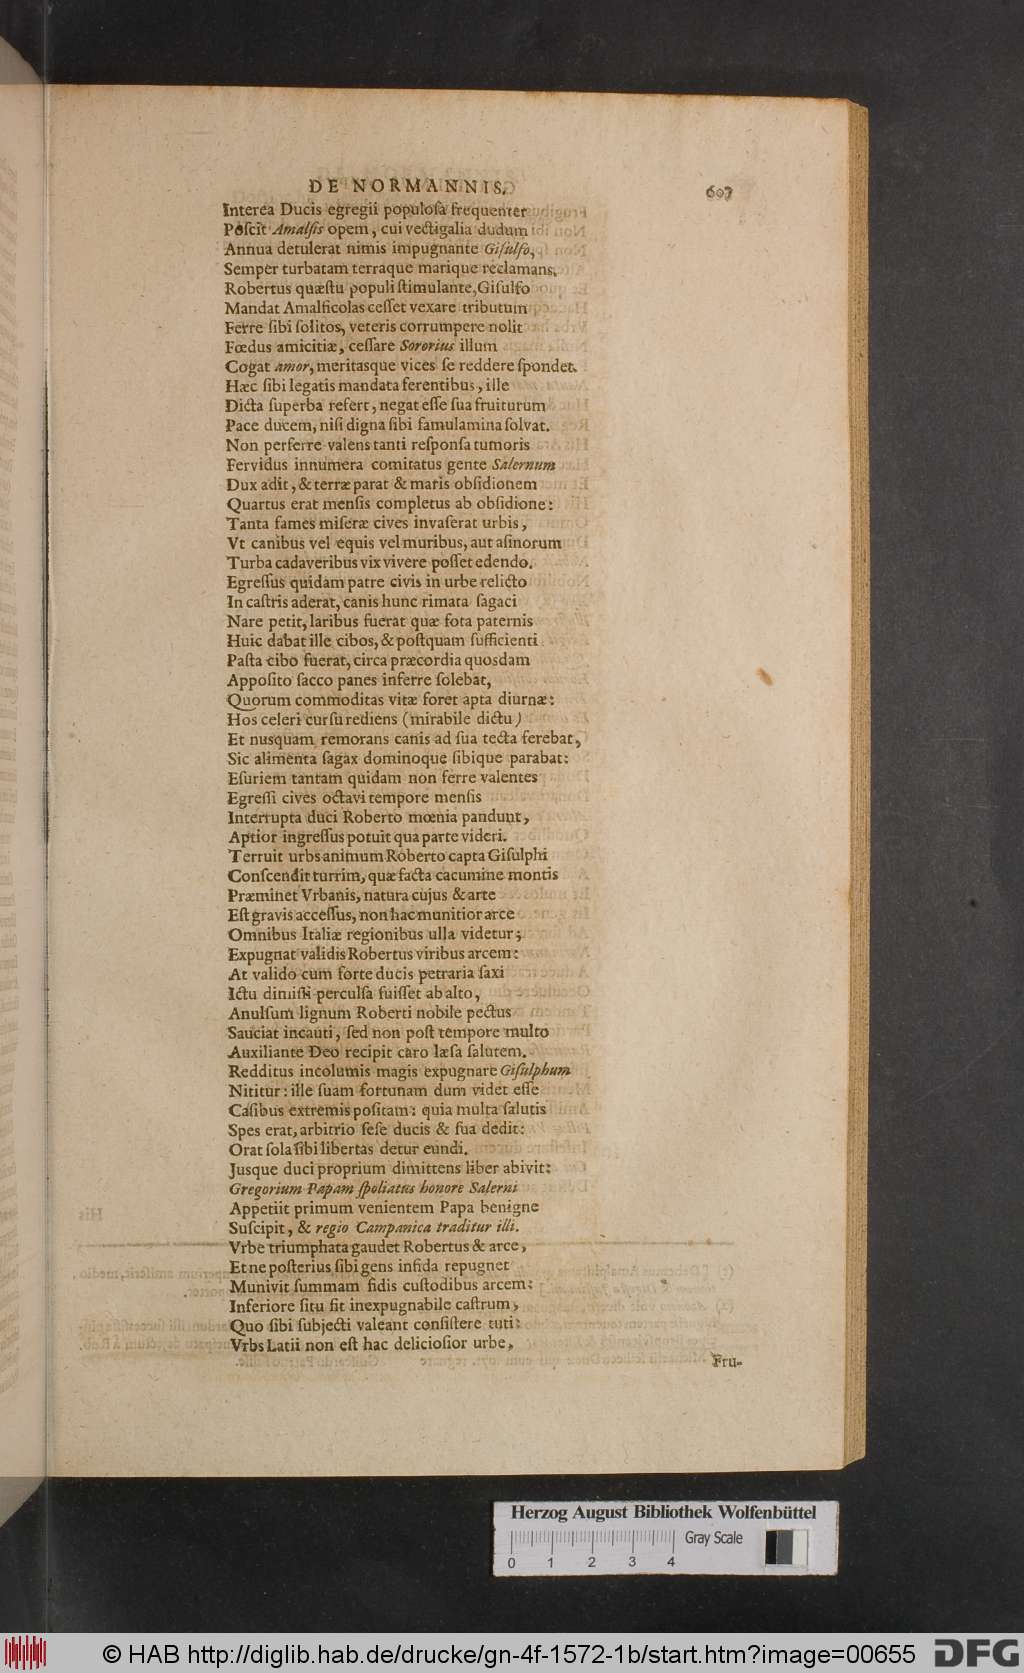 DE NORMANNIS.
697
Interea Ducis egregii populoſa frequenter
Poſcit Amalfis opem, cui vectigalia dudum
Annua detulerat nimis impugnante Giſulfo,
Semper turbatam terraque marique reclamans.
Robertus quæſtu populi ſtimulante, Giſulfo
Mandat Amalficolas ceſſet vexare tributum
Ferre ſibi ſolitos, veteris corrumpere nolit
Fœdus amicitiæ, ceſſare Sororius illum
Cogat amor, meritasque vices ſe reddere ſpondet.
Hæc ſibi legatis mandata ferentibus, ille
Dicta ſuperba refert, negat eſſe ſua fruiturum
Pace ducem, niſi digna ſibi famulamina ſolvat.
Non perferre valens tanti reſponſa tumoris
Fervidus innumera comitatus gente Salernum
Dux adit, & terræ parat & maris obſidionem
Quartus erat menſis completus ab obſidione:
Tanta fames miſeræ cives invaſerat urbis,
Vt canibus vel equis vel muribus, aut aſinorum
Turba cadaveribus vix vivere poſſet edendo.
Egreſſus quidam patre civis in urbe relicto
In caſtris aderat, canis hunc rimata ſagaci
Nare petit, laribus fuerat quæ fota paternis
Huic dabat ille cibos, & poſtquam ſufficienti
Paſta cibo fuerat, circa præcordia quosdam
Appoſito ſacco panes inferre ſolebat,
Quorum commoditas vitæ foret apta diurnæ:
Hos celeri curſu rediens (mirabile dictu)
Et nusquam remorans canis ad ſua tecta ferebat,
Sic alimenta ſagax dominoque ſibique parabat:
Eſuriem tantam quidam non ferre valentes
Egreſſi cives octavi tempore menſis
Interrupta duci Roberto mœnia pandunt,
Aptior ingreſſus potuit qua parte videri.
Terruit urbs animum Roberto capta Giſulphi
Conſcendit turrim, quæ facta cacumine montis
Præminet Vrbanis, natura cujus & arte
Eſt gravis acceſſus, non hac munitior arce
Omnibus Italiæ regionibus ulla videtur;
Expugnat validis Robertus viribus arcem:
At valido cum forte ducis petraria ſaxi
Ictu dimiſſi perculſa fuiſſet ab alto,
Anulſum lignum Roberti nobile pectus
Sauciat incauti, ſed non poſt tempore multo
Auxiliante Deo recipit caro læſa ſalutem.
Redditus incolumis magis expugnare Giſulphum
Nititur: ille ſuam fortunam dum videt eſſe
Caſibus extremis poſitam: quia multa ſalutis
Spes erat, arbitrio ſeſe ducis & ſua dedit:
Orat ſola ſibi libertas detur eundi.
Jusque duci proprium dimittens liber abivit:
Gregorium Papam ſpoliatus honore Salerni
Appetiit primum venientem Papa benigne
Suſcipit, & regio Campanica traditur illi.
Vrbe triumphata gaudet Robertus & arce,
Et ne poſterius ſibi gens infida repugnet
Munivit ſummam fidis cuſtodibus arcem:
Inferiore ſitu ſit inexpugnabile caſtrum,
Quo ſibi ſubjecti valeant conſiſtere tuti:
Vrbs Latii non eſt hac delicioſior urbe,
Fru-
Herzog August Bibliothek Wolfenbüttel
Gray Scale
0 1 2 3 4
© HAB http://diglib.hab.de/drucke/gn-4f-1572-1b/start.htm?image=00655
DFG